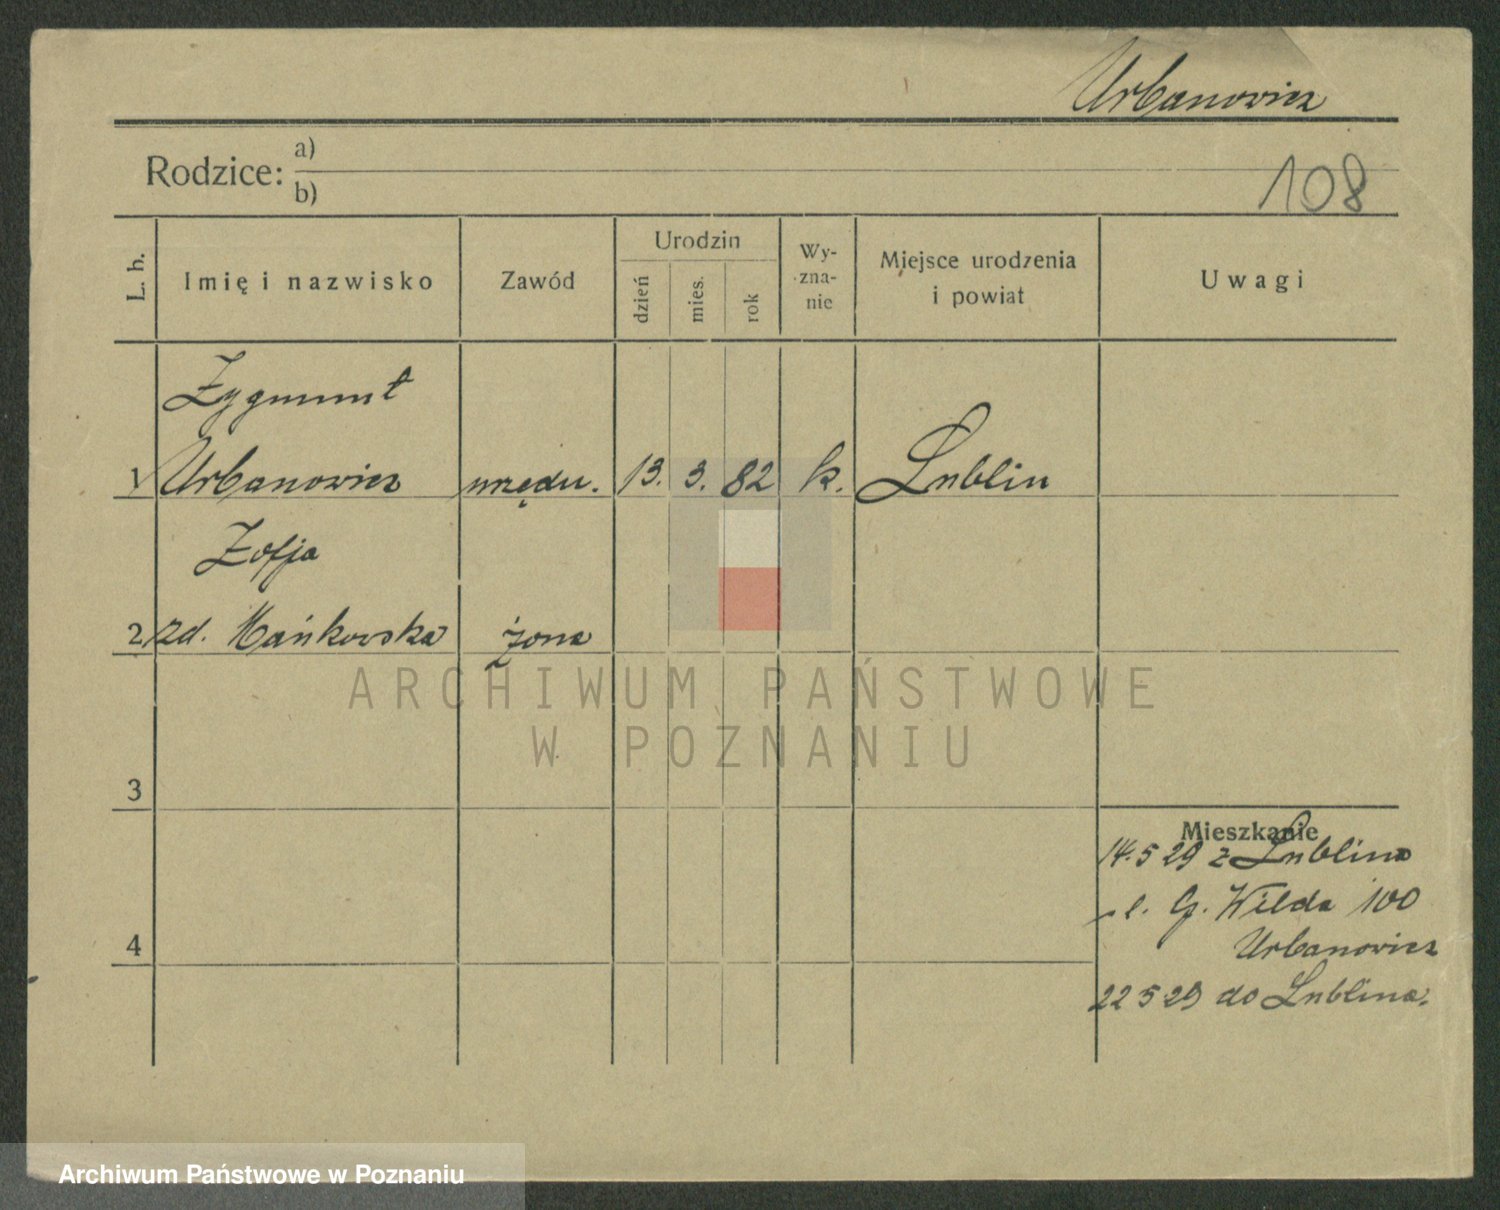 Urbanowicz
Rodzice: a)
b)
108
L. b.
Imię i nazwisko
Zawód
Urodzin
dzień
mies.
rok
Wy-
zna-
nie
Miejsce urodzenia
i powiat
Uwagi
Zygmunt
1 Urbanowicz urzędn. 13. 3. 82 k. Lublin
Zofja
2 zd. Mańkowska żona
ARCHIWUM PAŃSTWOWE
W POZNANIU
3
Mieszkanie
14.5 29 z Lublina
G. Wilda 100
4
Urbanowicz
22 5 29 do Lublina.
Archiwum Państwowe w Poznaniu